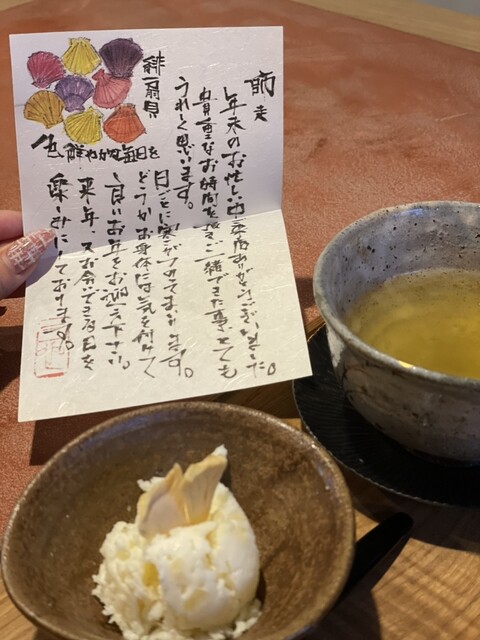 師走
年末のお忙しい中来店ありがとうございました。
貴重なお時間をご一緒できた事とても
うれしく思います。
緋扇貝
色鮮やかな毎日を
日ごとに寒さがつのってまいります。
どうかお身体には気を付けて
良いお年をお迎え下さい。
来年、又お会いできる日を
楽しみにしております。